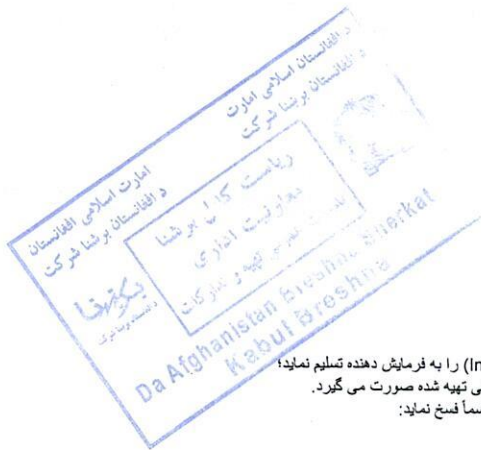 د افغانستان اسلامی امارت
د افغانستان برشنا شرکت
امارت اسلامی افغانستان
د افغانستان برشنا شرکت
ریاست کابل برشنا
معاونیت اداری
تهیه و تدارکات
Da Afghanistan Breshna Sherkat
Kabul Breshna
In) را به فرمایش دهنده تسلیم نماید؛
ی تهیه شده صورت می گیرد.
سماً فسخ نماید: